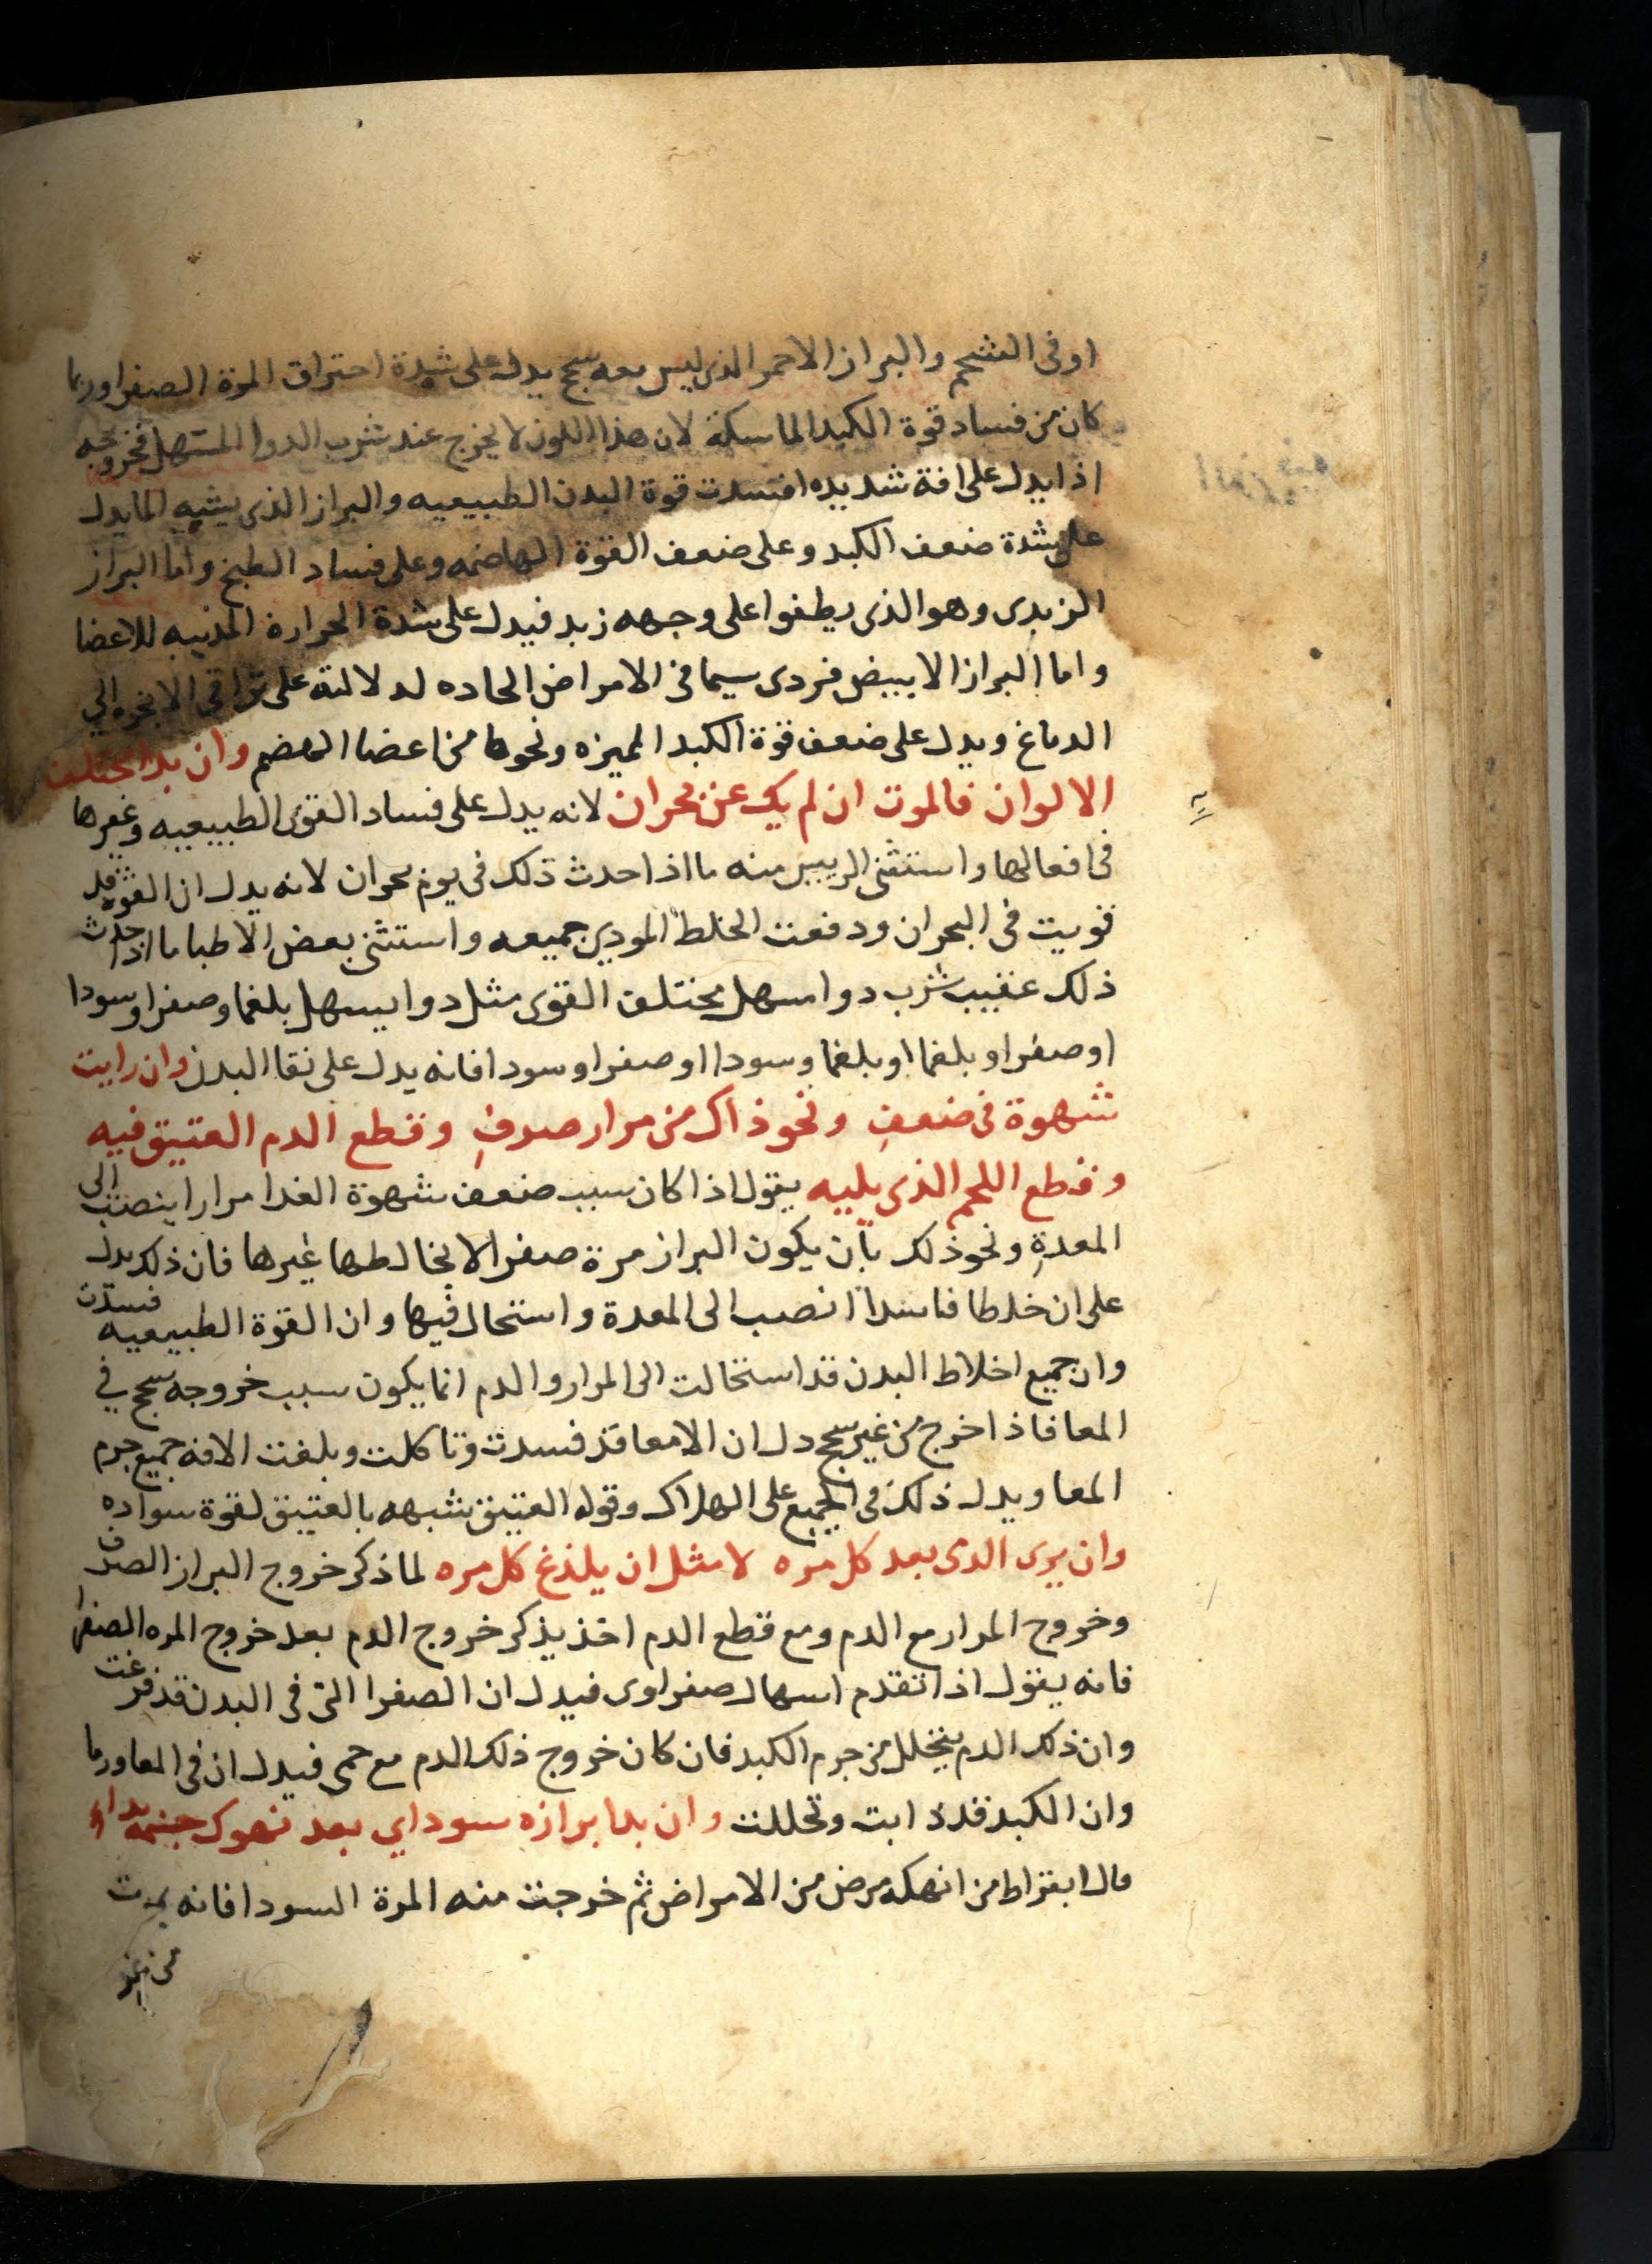 اوفى الشحم والبراز الاحمر الذى ليس معه سحج يدل على شدة احتراق المرة الصفرا وربما
كان من فساد قوة الكبد الماسكة لان هذا اللون لا يخرج عند شرب الدوا المسهل فخروجه
اذا يدل على افة شديده افسدت قوة البدن الطبيعيه والبراز الذى يشبه الما يدل
على شدة ضعف الكبد وعلى ضعف القوة الهاضمه وعلى فساد الطبخ واما البراز
الزبدى وهو الذى يطفوا على وجهه زبد فيدل على شدة الحرارة المذيبه للاعضا
واما البراز الابيض فردى سيما فى الامراض الحاده لدلالته على تراقى الابخره الي
الدماغ ويدل على ضعف قوة الكبد المميزه ونحوها من اعضا الهضم وان بدا مختلف
الالوان فالموت ان لم يك عن بحران لانه يدل على فساد القوى الطبيعيه وغيرها
فى افعالها واستثنى الرييس منه ما اذا حدث ذلك فى يوم بحران لانه يدل ان القوة قد
قويت فى البحران ودفعت الخلط المودي جميعه واستثنى بعض الاطبا ما اذا حدث
ذلك عقيب شرب دوا مسهل مختلف القوى مثل دوا يسهل بلغما وصفرا وسودا
او صفرا وبلغما او بلغما وسودا او صفرا وسودا فانه يدل على نقا البدن وان رايت
شهوة فى ضعفٍ ونحو ذاك من مرار صرفٍ وقطع الدم العتيق فيه
وقطع اللحم الذى يليه يقول اذا كان سبب ضعف شهوة الغدا مرارا ينصب الى
المعدةِ ونحو ذلك بان يكون البراز مرة صفرا لا يخالطها غيرها فان ذلك يدل
على ان خلطا فاسدا انصب الى المعدة واستحال فيها وان القوة الطبيعيه فسدت
وان جميع اخلاط البدن قد استحالت الى المرار والدم انما يكون سبب خروجه سحج في
المعا فاذا خرج من غير سحج دل ان الامعا قد فسدت وتاكلت وبلغت الافه جميع جرم
المعا ويدل ذلك فى الجميع على الهلاك وقوله العتيق شبهه بالعتيق لقوة سواده
وان يرى الدى بعد كل مره لا مثل ان يلذغ كل مره لما ذكر خروج البراز الصرف
وخروج المرار مع الدم ومع قطع الدم اخذ يذكر خروج الدم بعد خروج المره الصفرا
فانه يقول اذا تقدم اسهال صفراوى فيدل ان الصفرا التى فى البدن قد فرغت
وان ذلك الدم يتحلل من جرم الكبد فان كان خروج ذلك الدم مع حمى فيدل ان فى المعا ورما
وان الكبد قد ذابت وتحللت وان بدا برازه سوداي بعد نهوك جسمه بداء
قال ابقراط من انهكه مرض من الامراض ثم خرجت منه المرة السودا فانه يموت
من غد